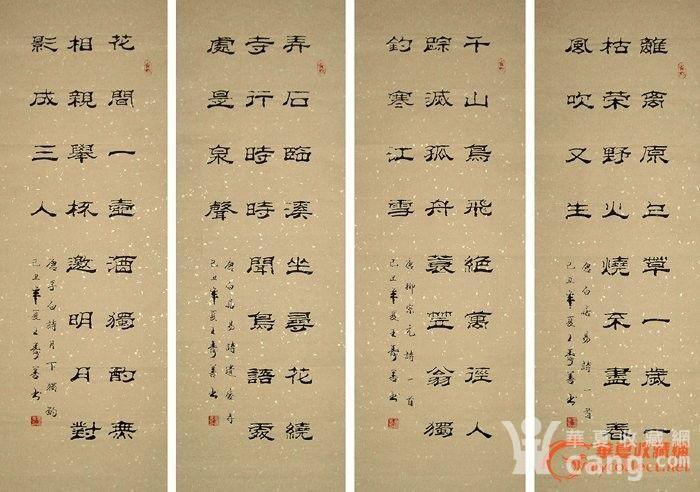 離离原上草一歲一
枯荣野火燒不盡春
風吹又生
唐白居易詩一首
己丑年夏王壽善书
千山鳥飛絕萬徑人
踪滅孤舟蓑笠翁獨
釣寒江雪
唐柳宗元詩一首
己丑年夏王壽善书
弄石臨溪坐尋花繞
寺行時時聞鳥語處
處是泉聲
唐白居易詩遺愛寺
己丑年夏王壽善书
花間一壺酒獨酌無
相親舉杯邀明月對
影成三人
唐李白詩月下獨酌
己丑年夏王壽善书
華夏收藏網
cang.com
華夏收藏網
mycollect.net